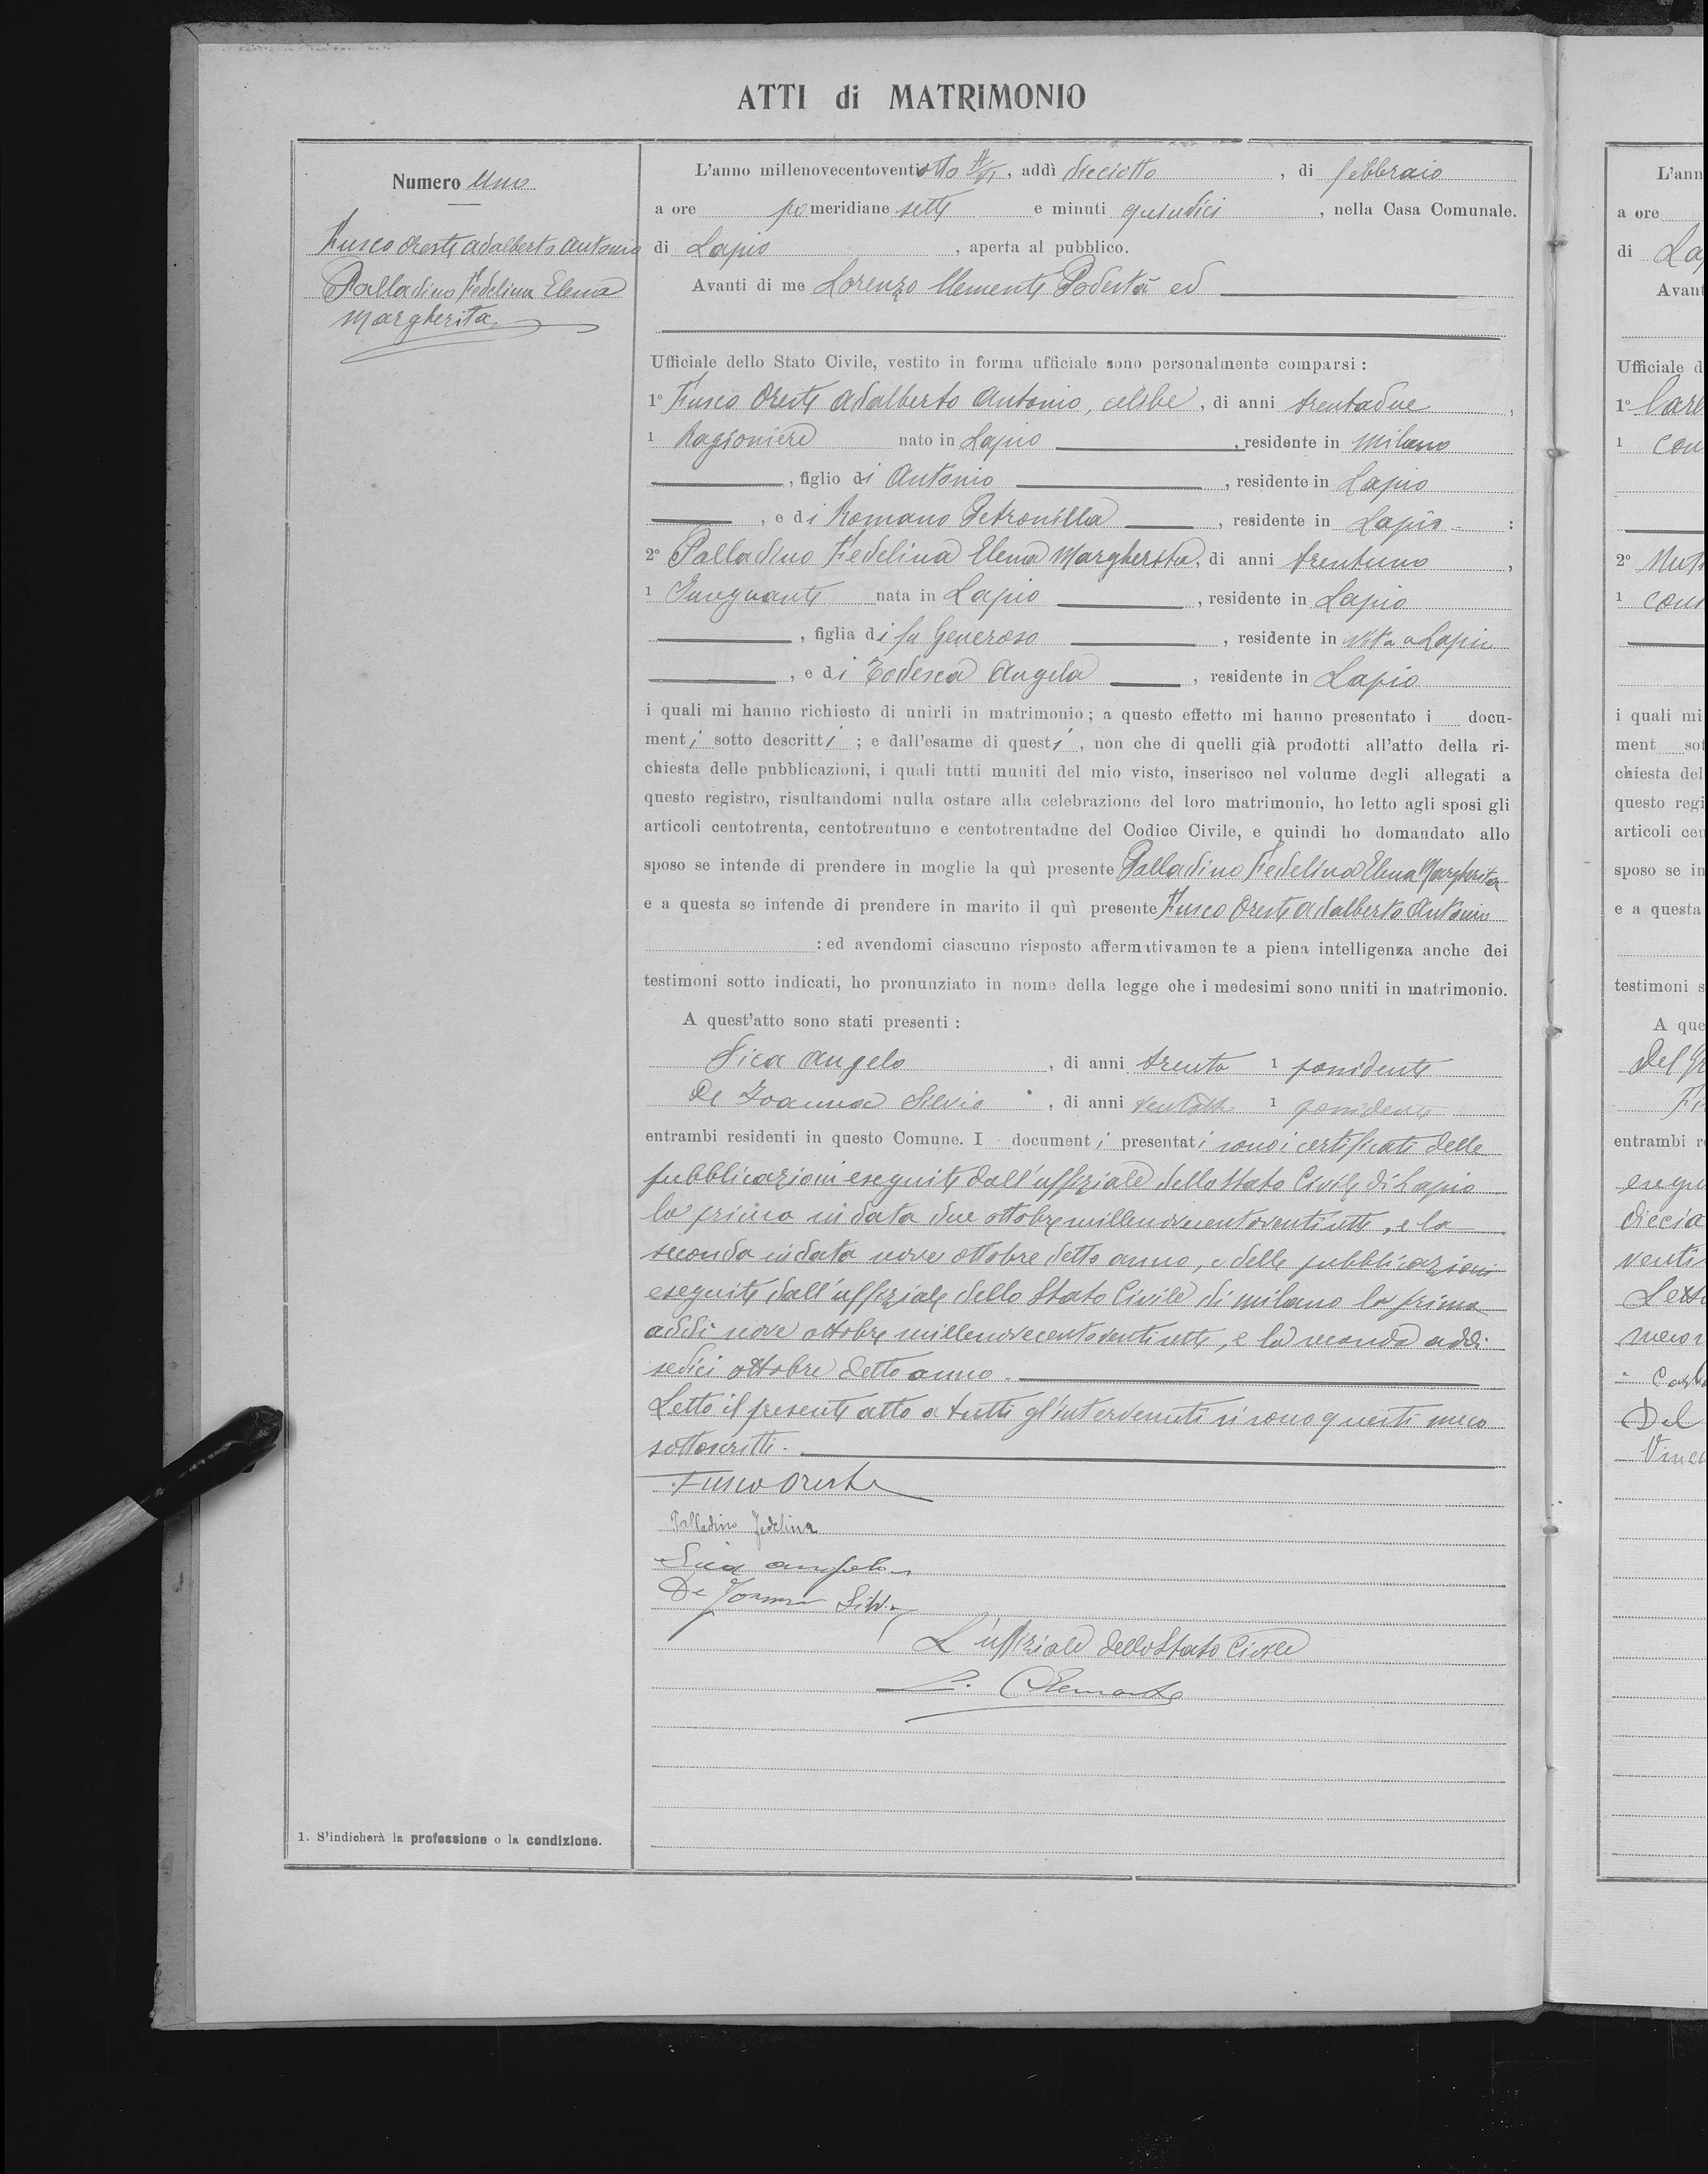 ATTI di MATRIMONIO
Numero Uno
Fusco Oreste Adalberto Antonio
Palladino Fedelina Elena
Margherita
L'anno millenovecentoventiotto, addì dieciotto, di febbraio
a ore pomeridiane sette e minuti quindici, nella Casa Comunale.
di Lapio, aperta al pubblico.
Avanti di me Lorenzo Clemente Podestà ed
Ufficiale dello Stato Civile, vestito in forma ufficiale sono personalmente comparsi :
1° Fusco Oreste Adalberto Antonio, celibe, di anni trentadue,
1 Ragioniere nato in Lapio, residente in Milano
, figlio di Antonio, residente in Lapio
, e di Romano Petronilla, residente in Lapio :
2° Palladino Fedelina Elena Margherita, di anni trentuno,
1 Insegnante nata in Lapio, residente in Lapio
, figlia di fu Generoso, residente in vita a Lapio
, e di Todesca Angela, residente in Lapio
i quali mi hanno richiesto di unirli in matrimonio ; a questo effetto mi hanno presentato i docu-
menti sotto descritti ; e dall'esame di questi, non che di quelli già prodotti all'atto della ri-
chiesta delle pubblicazioni, i quali tutti muniti del mio visto, inserisco nel volume degli allegati a
questo registro, risultandomi nulla ostare alla celebrazione del loro matrimonio, ho letto agli sposi gli
articoli centotrenta, centotrentuno e centotrentadue del Codice Civile, e quindi ho domandato allo
sposo se intende di prendere in moglie la quì presente Palladino Fedelina Elena Margherita
e a questa se intende di prendere in marito il quì presente Fusco Oreste Adalberto Antonio
: ed avendomi ciascuno risposto affermativamen te a piena intelligenza anche dei
testimoni sotto indicati, ho pronunziato in nome della legge che i medesimi sono uniti in matrimonio.
A quest'atto sono stati presenti :
Sica Angelo, di anni trenta 1 possidente
De Ioanna Silvio, di anni ventotto 1 possidente
entrambi residenti in questo Comune. I documenti presentati sono i certificati delle
pubblicazioni eseguite dall'uffiziale dello Stato Civile di Lapio
la prima in data due ottobre millenovecentoventisette, e la
seconda in data nove ottobre detto anno, e delle pubblicazioni
eseguite dall'uffiziale dello Stato Civile di Milano la prima
addì nove ottobre millenovecentoventisette, e la seconda addì
sedici ottobre detto anno.
Letto il presente atto a tutti gl'intervenuti si sono questi meco
sottoscritti.
Fusco Oreste
Palladino Fedelina
Sica Angelo
De Joanna Silvio
L'uffiziale dello Stato Civile
L. Clemente
1. S'indicherà la professione o la condizione.
L'ann
a ore
di La
Avant
Ufficiale d
1°
1 con
2°
1 con
i quali mi
ment sot
chiesta del
questo regi
articoli cen
sposo se in
e a questa
testimoni s
A que
Del
entrambi r
venti
Del